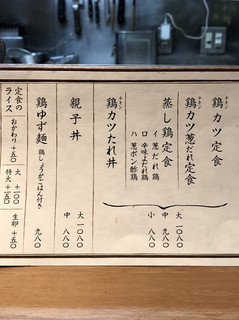 チキン
鶏カツ定食
チキン
鶏カツ葱だれ定食
蒸し鶏定食
イ 葱だれ鶏
ロ 辛味よだれ鶏
ハ 葱ポン酢鶏
大 一〇八〇
中 九八〇
小 八八〇
チキン
鶏カツたれ丼
親子丼
大 一〇八〇
中 八八〇
鶏ゆず麺
鶏しょうがごはん付き
九八〇
定食の
ライス
おかわり +五〇
大 +一〇〇
特大 +一五〇
生卵 +五〇